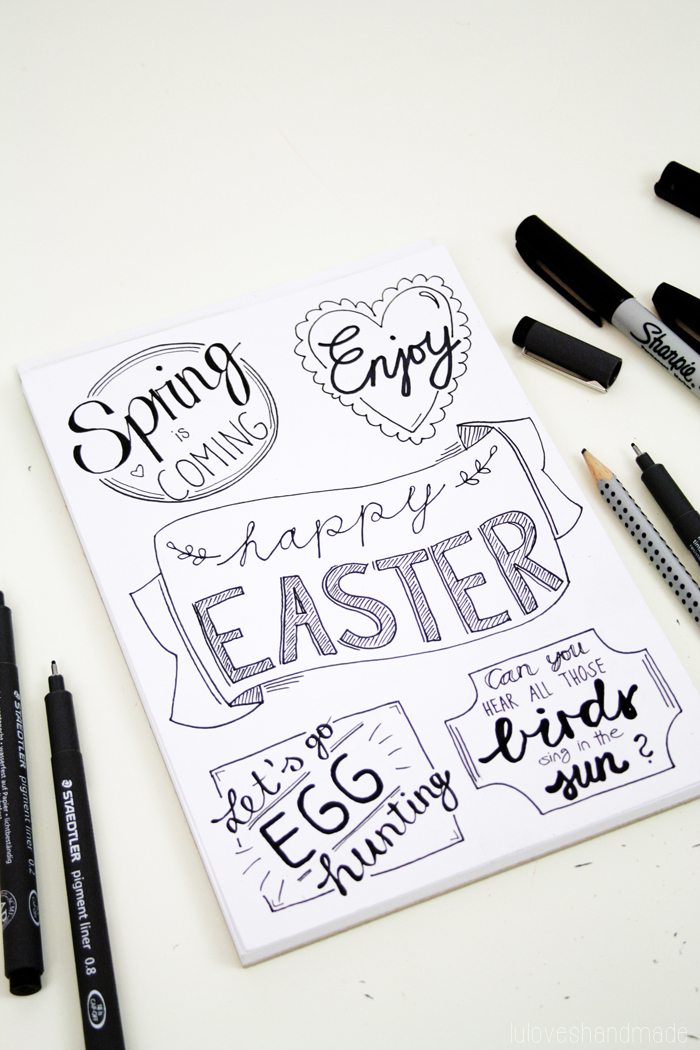 Spring
is
COMING
Enjoy
happy
EASTER
Let's go
EGG
hunting
Can you
HEAR ALL THOSE
birds
sing in the
sun?
Sharpie
STAEDTLER pigment liner 0.2
STAEDTLER pigment liner 0.8
luloveshandmade